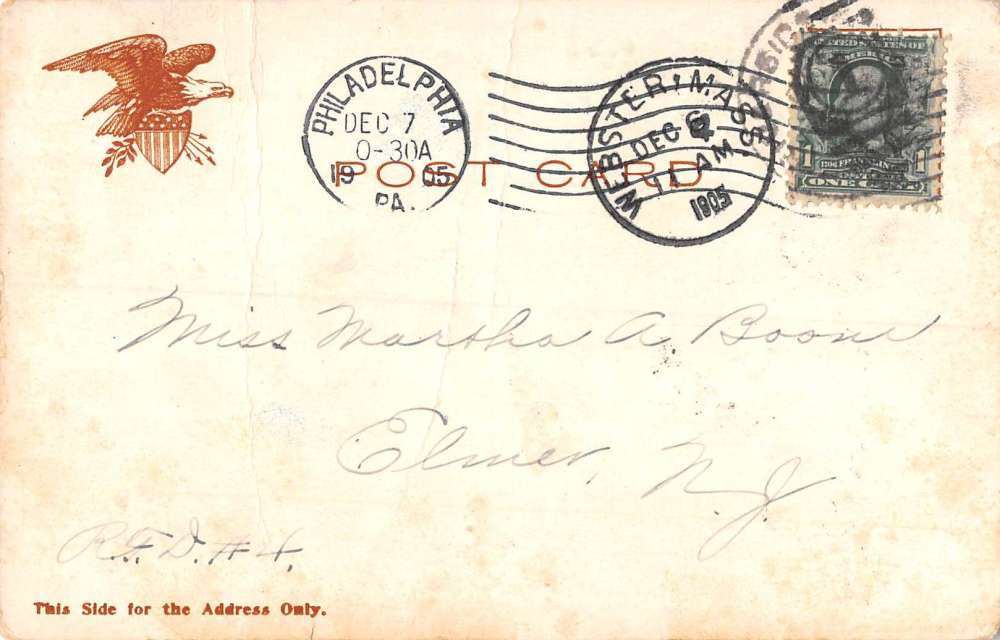 PHILADELPHIA
DEC 7
0-30A
19 05
PA.
WEBSTER, MASS.
DEC 6
11 AM
1905
UNITED STATES OF
AMERICA
1 FRANKLIN 1
ONE CENT
POST CARD
Miss Martha A Boone
Elmer, N.J.
R.F.D. #4.
This Side for the Address Only.